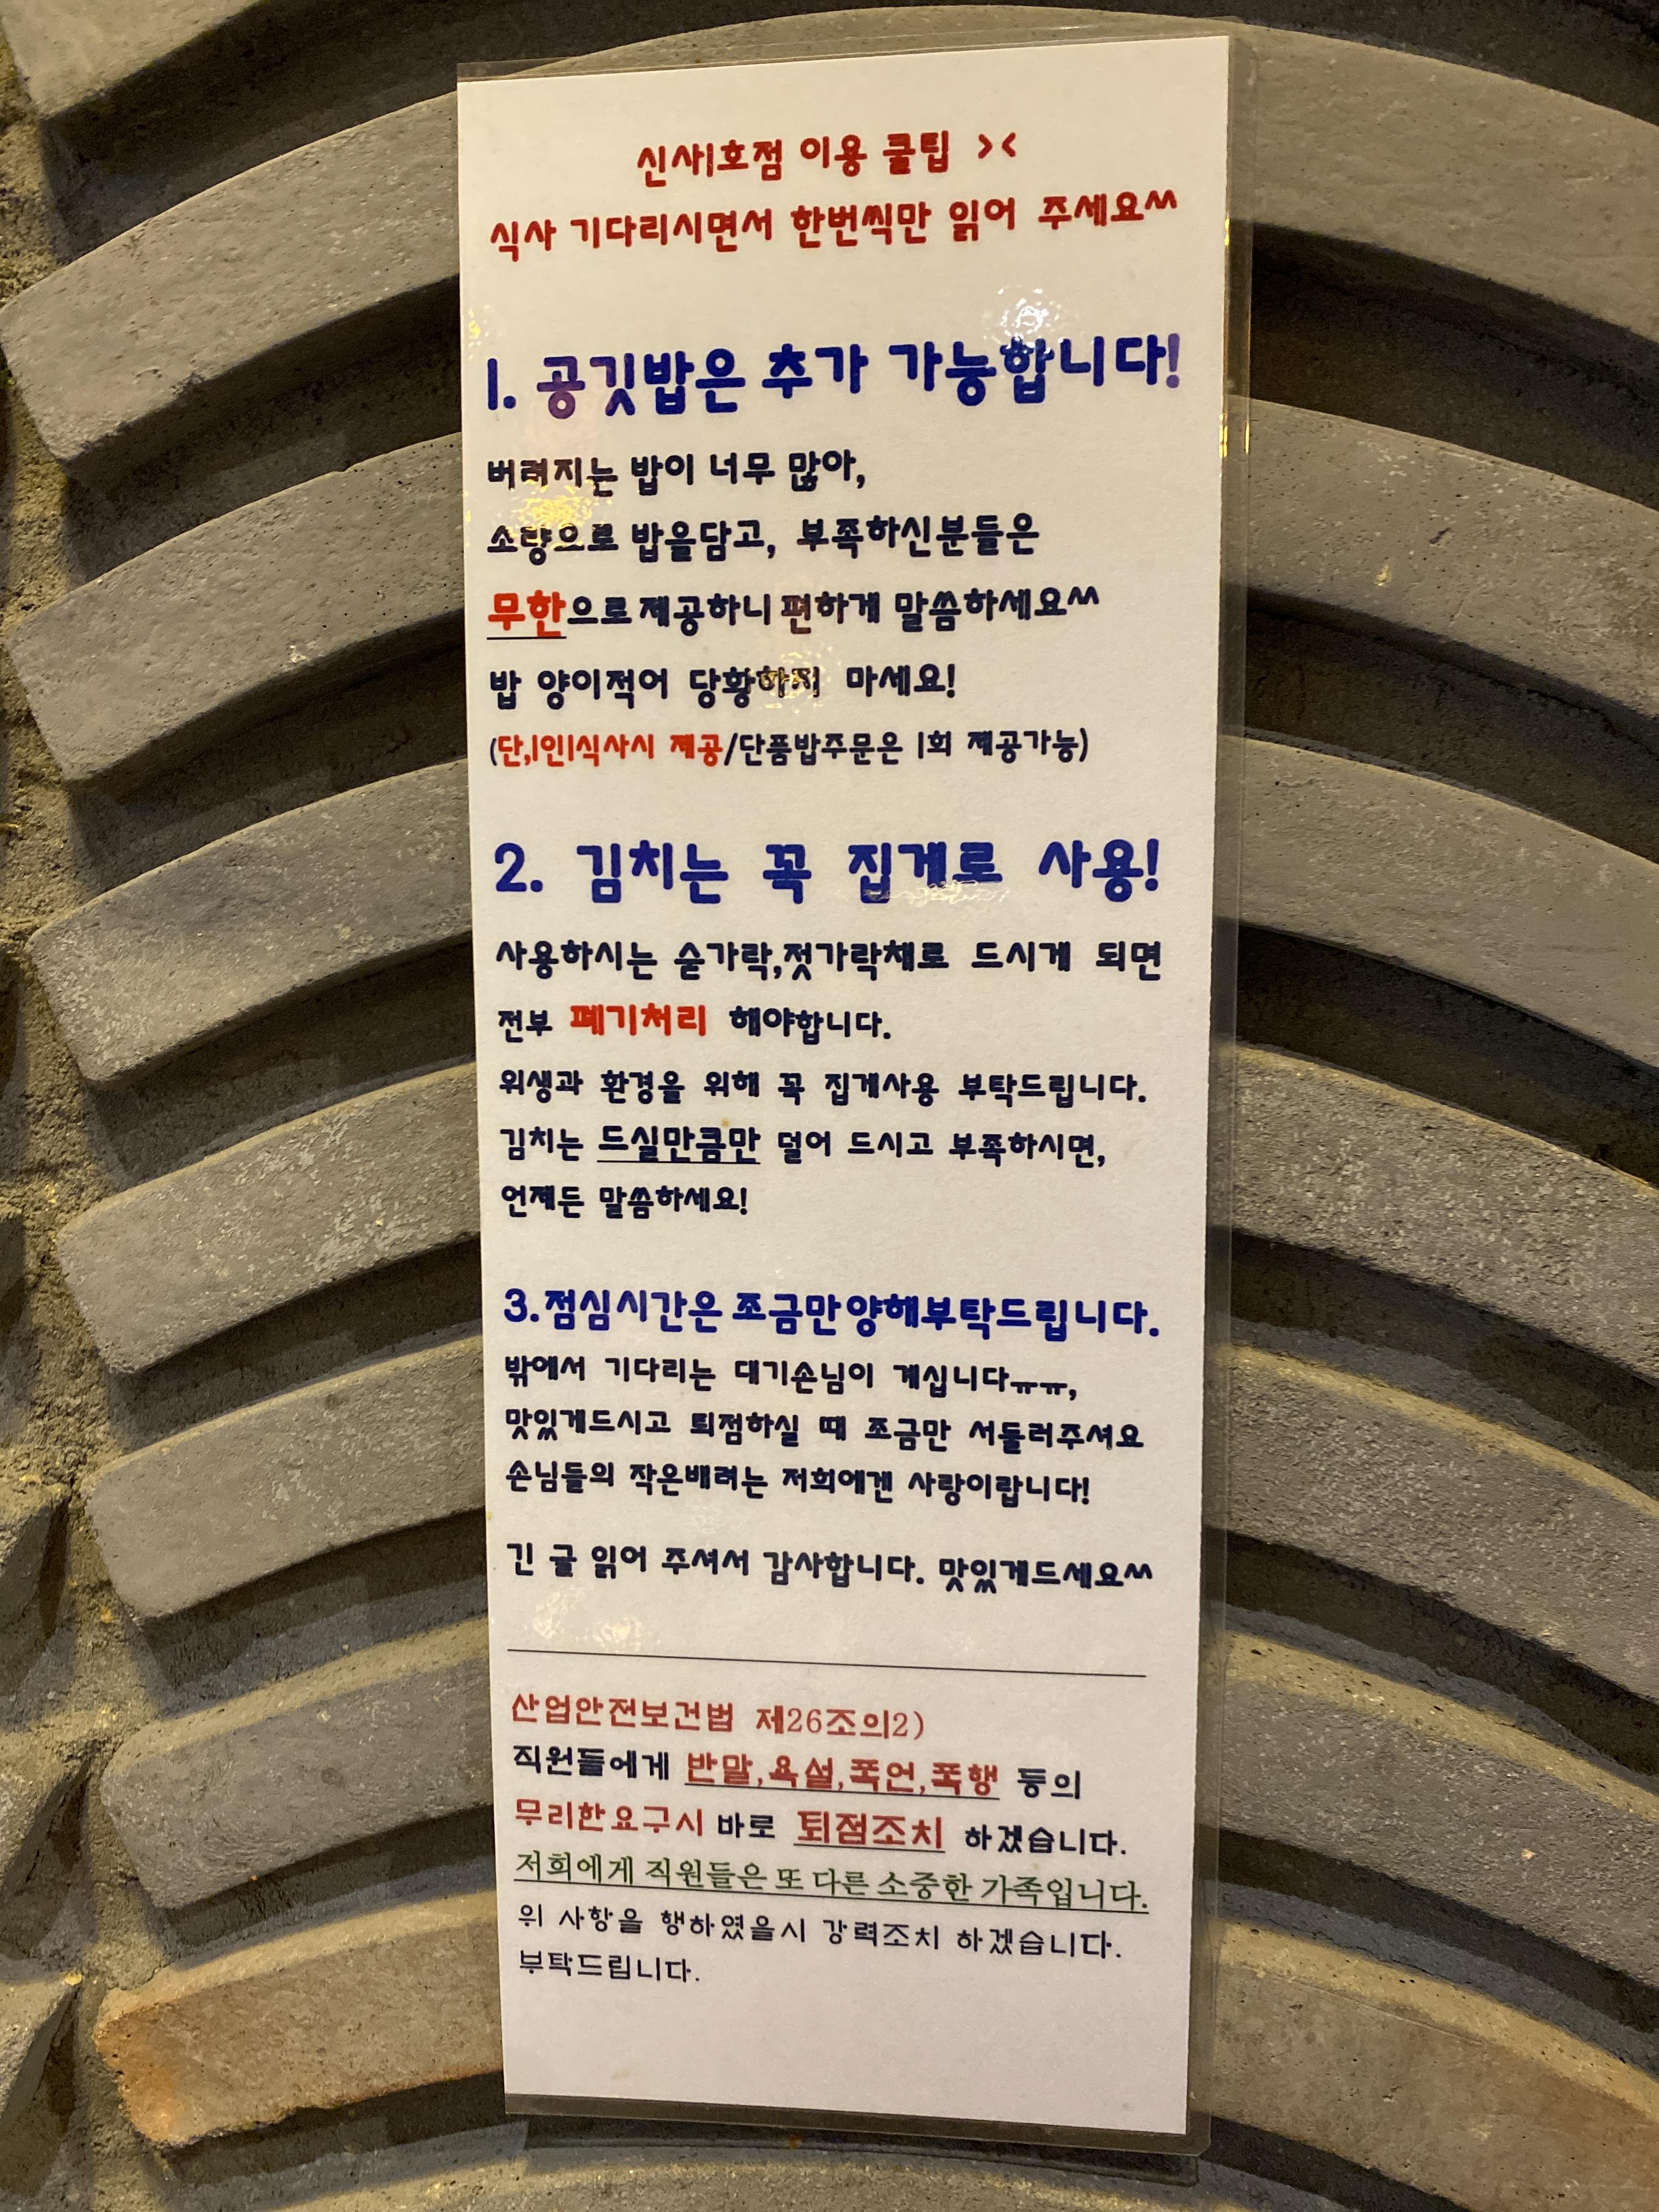 신사1호점 이용 쿨팁 ><
식사 기다리시면서 한번씩만 읽어 주세요^^
1. 공깃밥은 추가 가능합니다!
버려지는 밥이 너무 많아,
소량으로 밥을담고, 부족하신분들은
무한으로제공하니 편하게 말씀하세요^^
밥 양이적어 당황하지 마세요!
(단,1인1식사시 제공/단품밥주문은 1회 제공가능)
2. 김치는 꼭 집게로 사용!
사용하시는 숟가락,젓가락채로 드시게 되면
전부 폐기처리 해야합니다.
위생과 환경을 위해 꼭 집게사용 부탁드립니다.
김치는 드실만큼만 덜어 드시고 부족하시면,
언제든 말씀하세요!
3.점심시간은 조금만양해부탁드립니다.
밖에서 기다리는 대기손님이 계십니다ㅠㅠ,
맛있게드시고 퇴점하실 때 조금만 서둘러주셔요
손님들의 작은배려는 저희에겐 사랑이랍니다!
긴 글 읽어 주셔서 감사합니다. 맛있게드세요^^
산업안전보건법 제26조의2)
직원들에게 반말,욕설,폭언,폭행 등의
무리한요구시 바로 퇴점조치 하겠습니다.
저희에게 직원들은 또 다른 소중한 가족입니다.
위 사항을 행하였을시 강력조치 하겠습니다.
부탁드립니다.